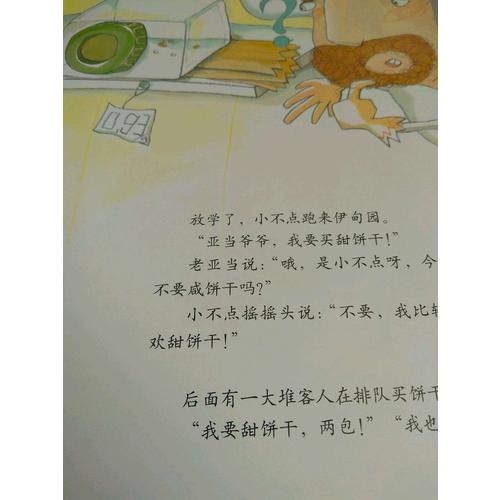 放学了，小不点跑来伊甸园。
“亚当爷爷，我要买甜饼干！”
老亚当说：“哦，是小不点呀，今
不要咸饼干吗？”
小不点摇摇头说：“不要，我比较
欢甜饼干！”
后面有一大堆客人在排队买饼干
“我要甜饼干，两包！”“我也